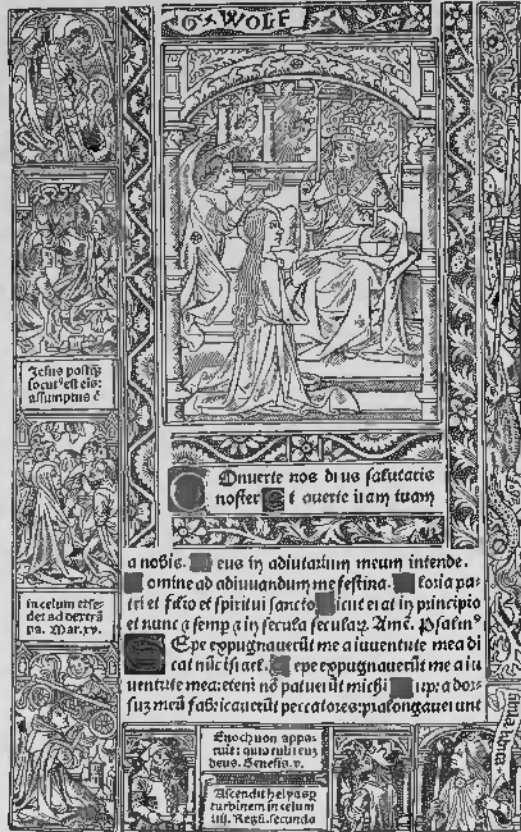 WOLF
Jesus postq̄
locut⁹ est eis:
assumptus ē
Onuerte nos dius salutaris
noster t auerte iram tuam
a nobis. eus in adiutorium meum intende.
omine ad adiuuandum me festina. loria pa-
tri et filio et spiritui sancto icut erat in principio
et nunc ⁊ semp ⁊ in secula seculaꝝ. Amē. Psalm⁹
in celum et se-
det ad dextrā
Mar. xv.
S Epe expugnauerūt me a iuuentute mea di
cat nūc isrł. epe expugnauerūt me a iu
uentute mea: etenī nō potuerūt michi upra dor-
suꝫ meū fabricauerūt peccatores: prolongauerunt
Enoch non appa-
ruit: quia tulit euꝫ
deus. Genesis. v.
Ascendit helyas ꝑ
turbinem in celum
iiii. Regū. secundo